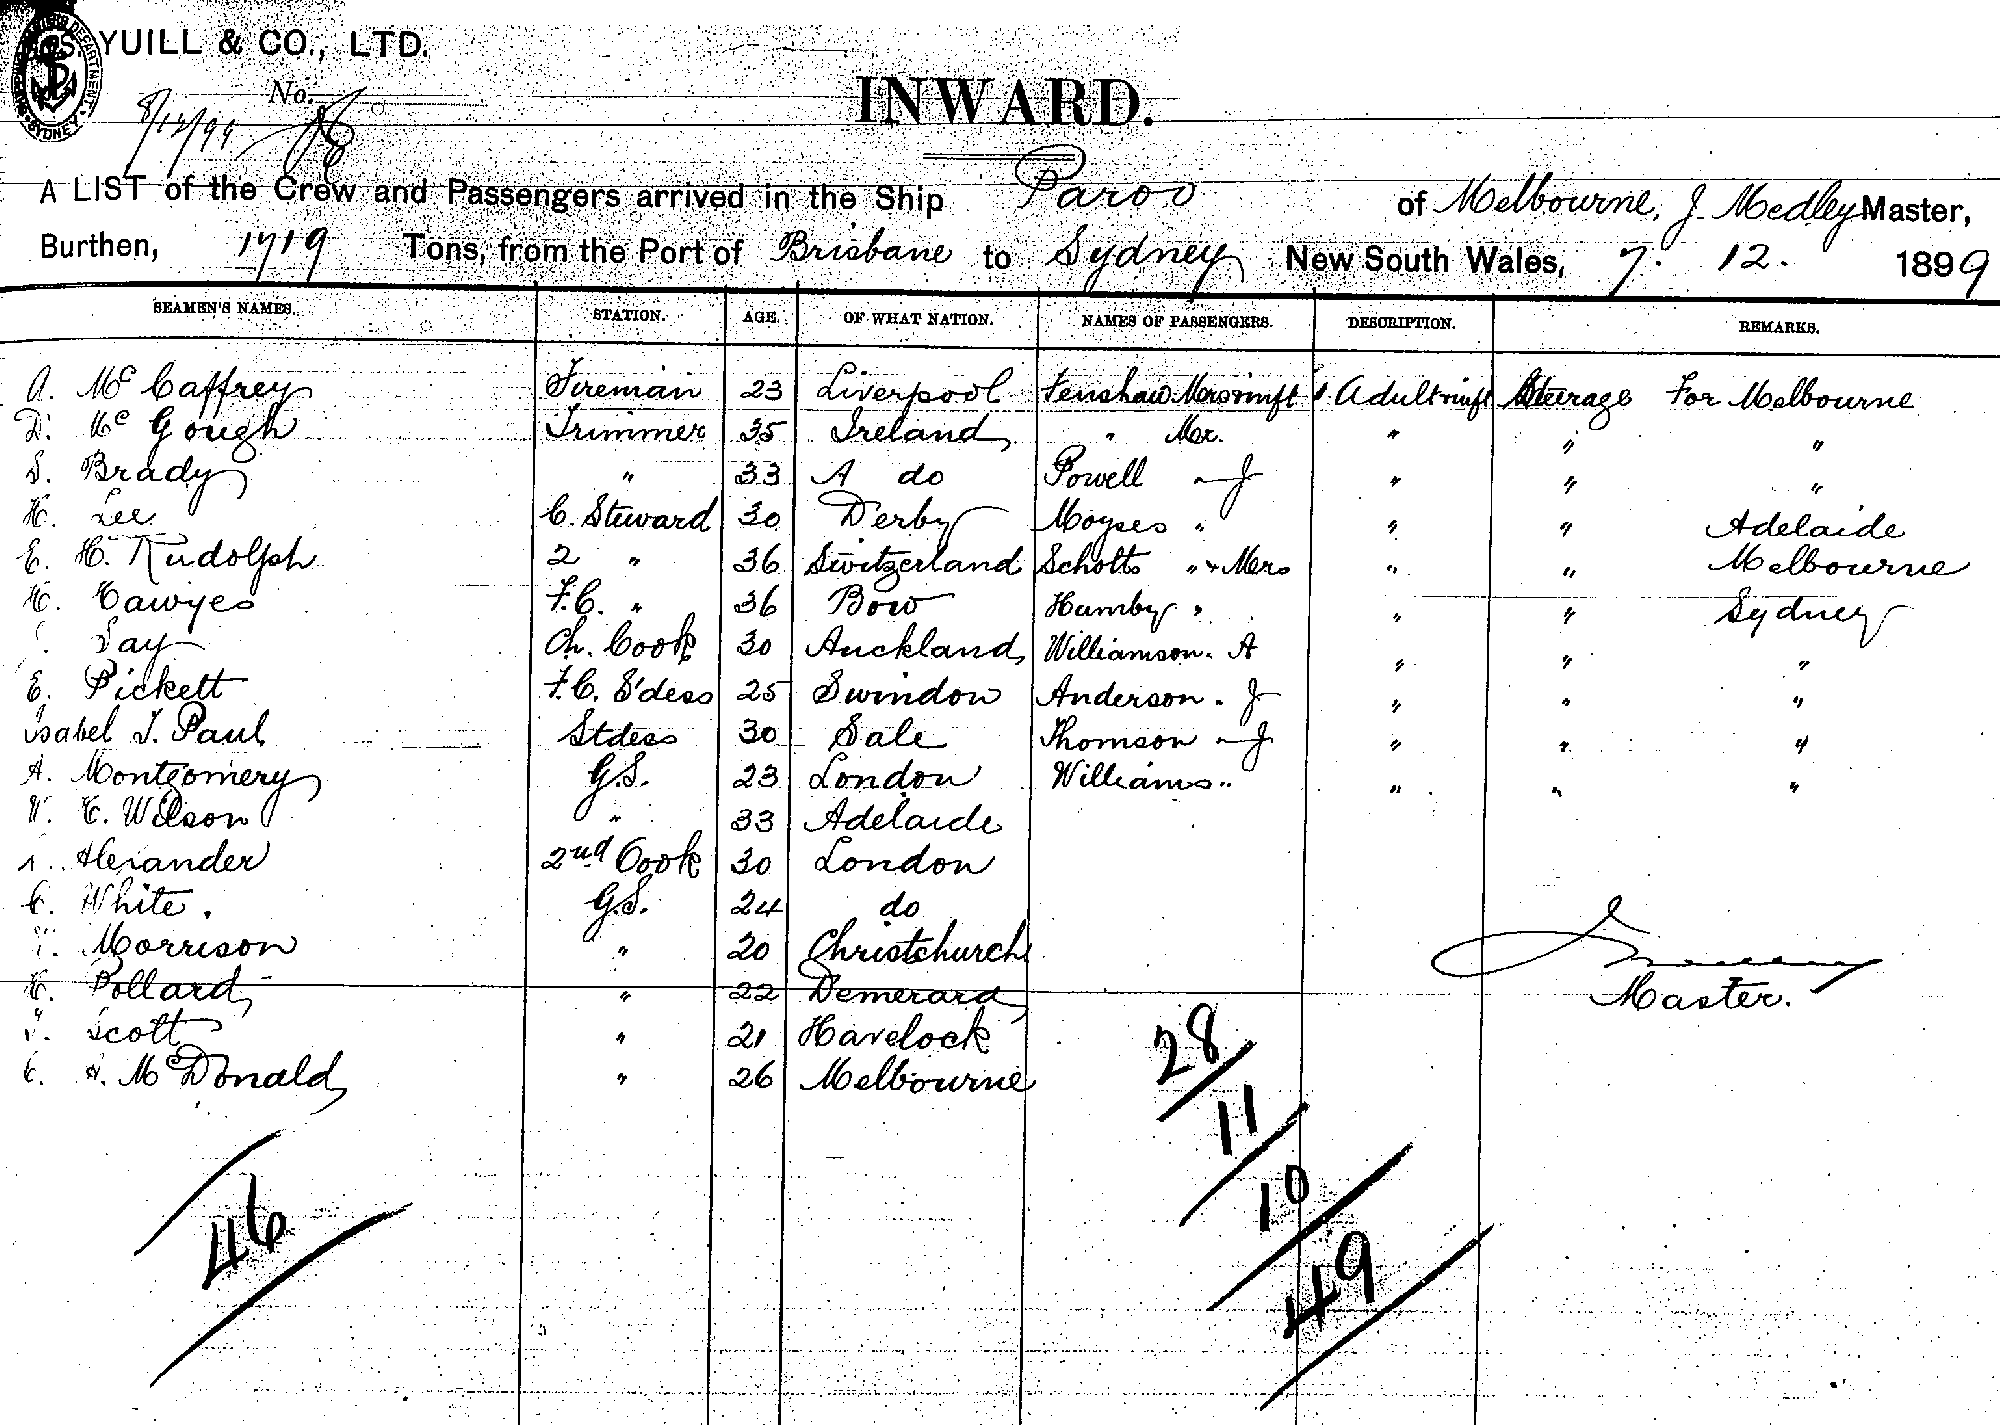 YUILL & CO., LTD.
No.
8/12/99
INWARD.
A LIST of the Crew and Passengers arrived in the Ship Paroo of Melbourne, J. Medley Master,
Burthen, 1719 Tons, from the Port of Brisbane to Sydney New South Wales, 7. 12. 1899
SEAMEN'S NAMES. STATION. AGE. OF WHAT NATION. NAMES OF PASSENGERS. DESCRIPTION. REMARKS.
A. McCaffrey Fireman 23 Liverpool Fenshaw Mrs & inft 1 Adult & inft Steerage For Melbourne
D. McGough Trimmer 35 Ireland " Mr. " " "
S. Brady " 33 A do Powell " J " " "
H. Lee C. Steward 30 Derby Moyses " " " Adelaide
E. H. Rudolph 2 " 36 Switzerland Scholts " & Mrs " " Melbourne
H. Cawyes F.C. " 36 Bow Hamby " " " Sydney
Day Ch. Cook 30 Auckland Williamson. A " " "
E. Pickett F.C. S'dess 25 Swindon Anderson. J " " "
Isabel J. Paul Stdess 30 Sale Thomson " J " " "
A. Montgomery G.S. 23 London Williams " " " "
W. C. Wilson " 33 Adelaide
Alexander 2nd Cook 30 London
C. White. G.S. 24 do
Morrison " 20 Christchurch
H. Pollard " 22 Demerara
Master.
Scott " 21 Havelock
C. A. McDonald " 26 Melbourne
28
11
10
46
49